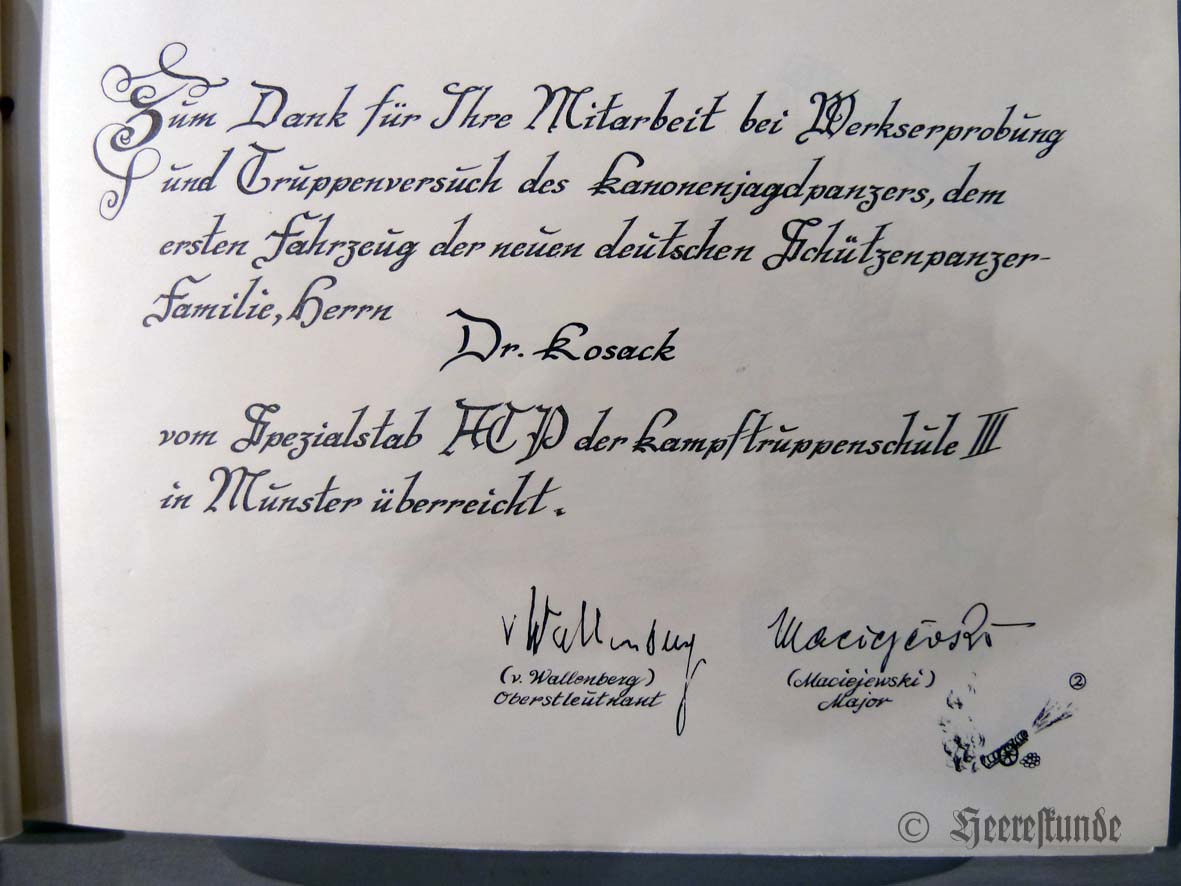 Zum Dank für Ihre Mitarbeit bei Werkserprobung
und Truppenversuch des Kanonenjagdpanzers, dem
ersten Fahrzeug der neuen deutschen Schützenpanzer-
Familie, Herrn
Dr. Kosack
vom Spezialstab ATP der Kampftruppenschule III
in Munster überreicht.
v Wallenberg
Maciejewski
(v. Wallenberg)
Oberstleutnant
(Maciejewski)
Major
2
© Heereskunde